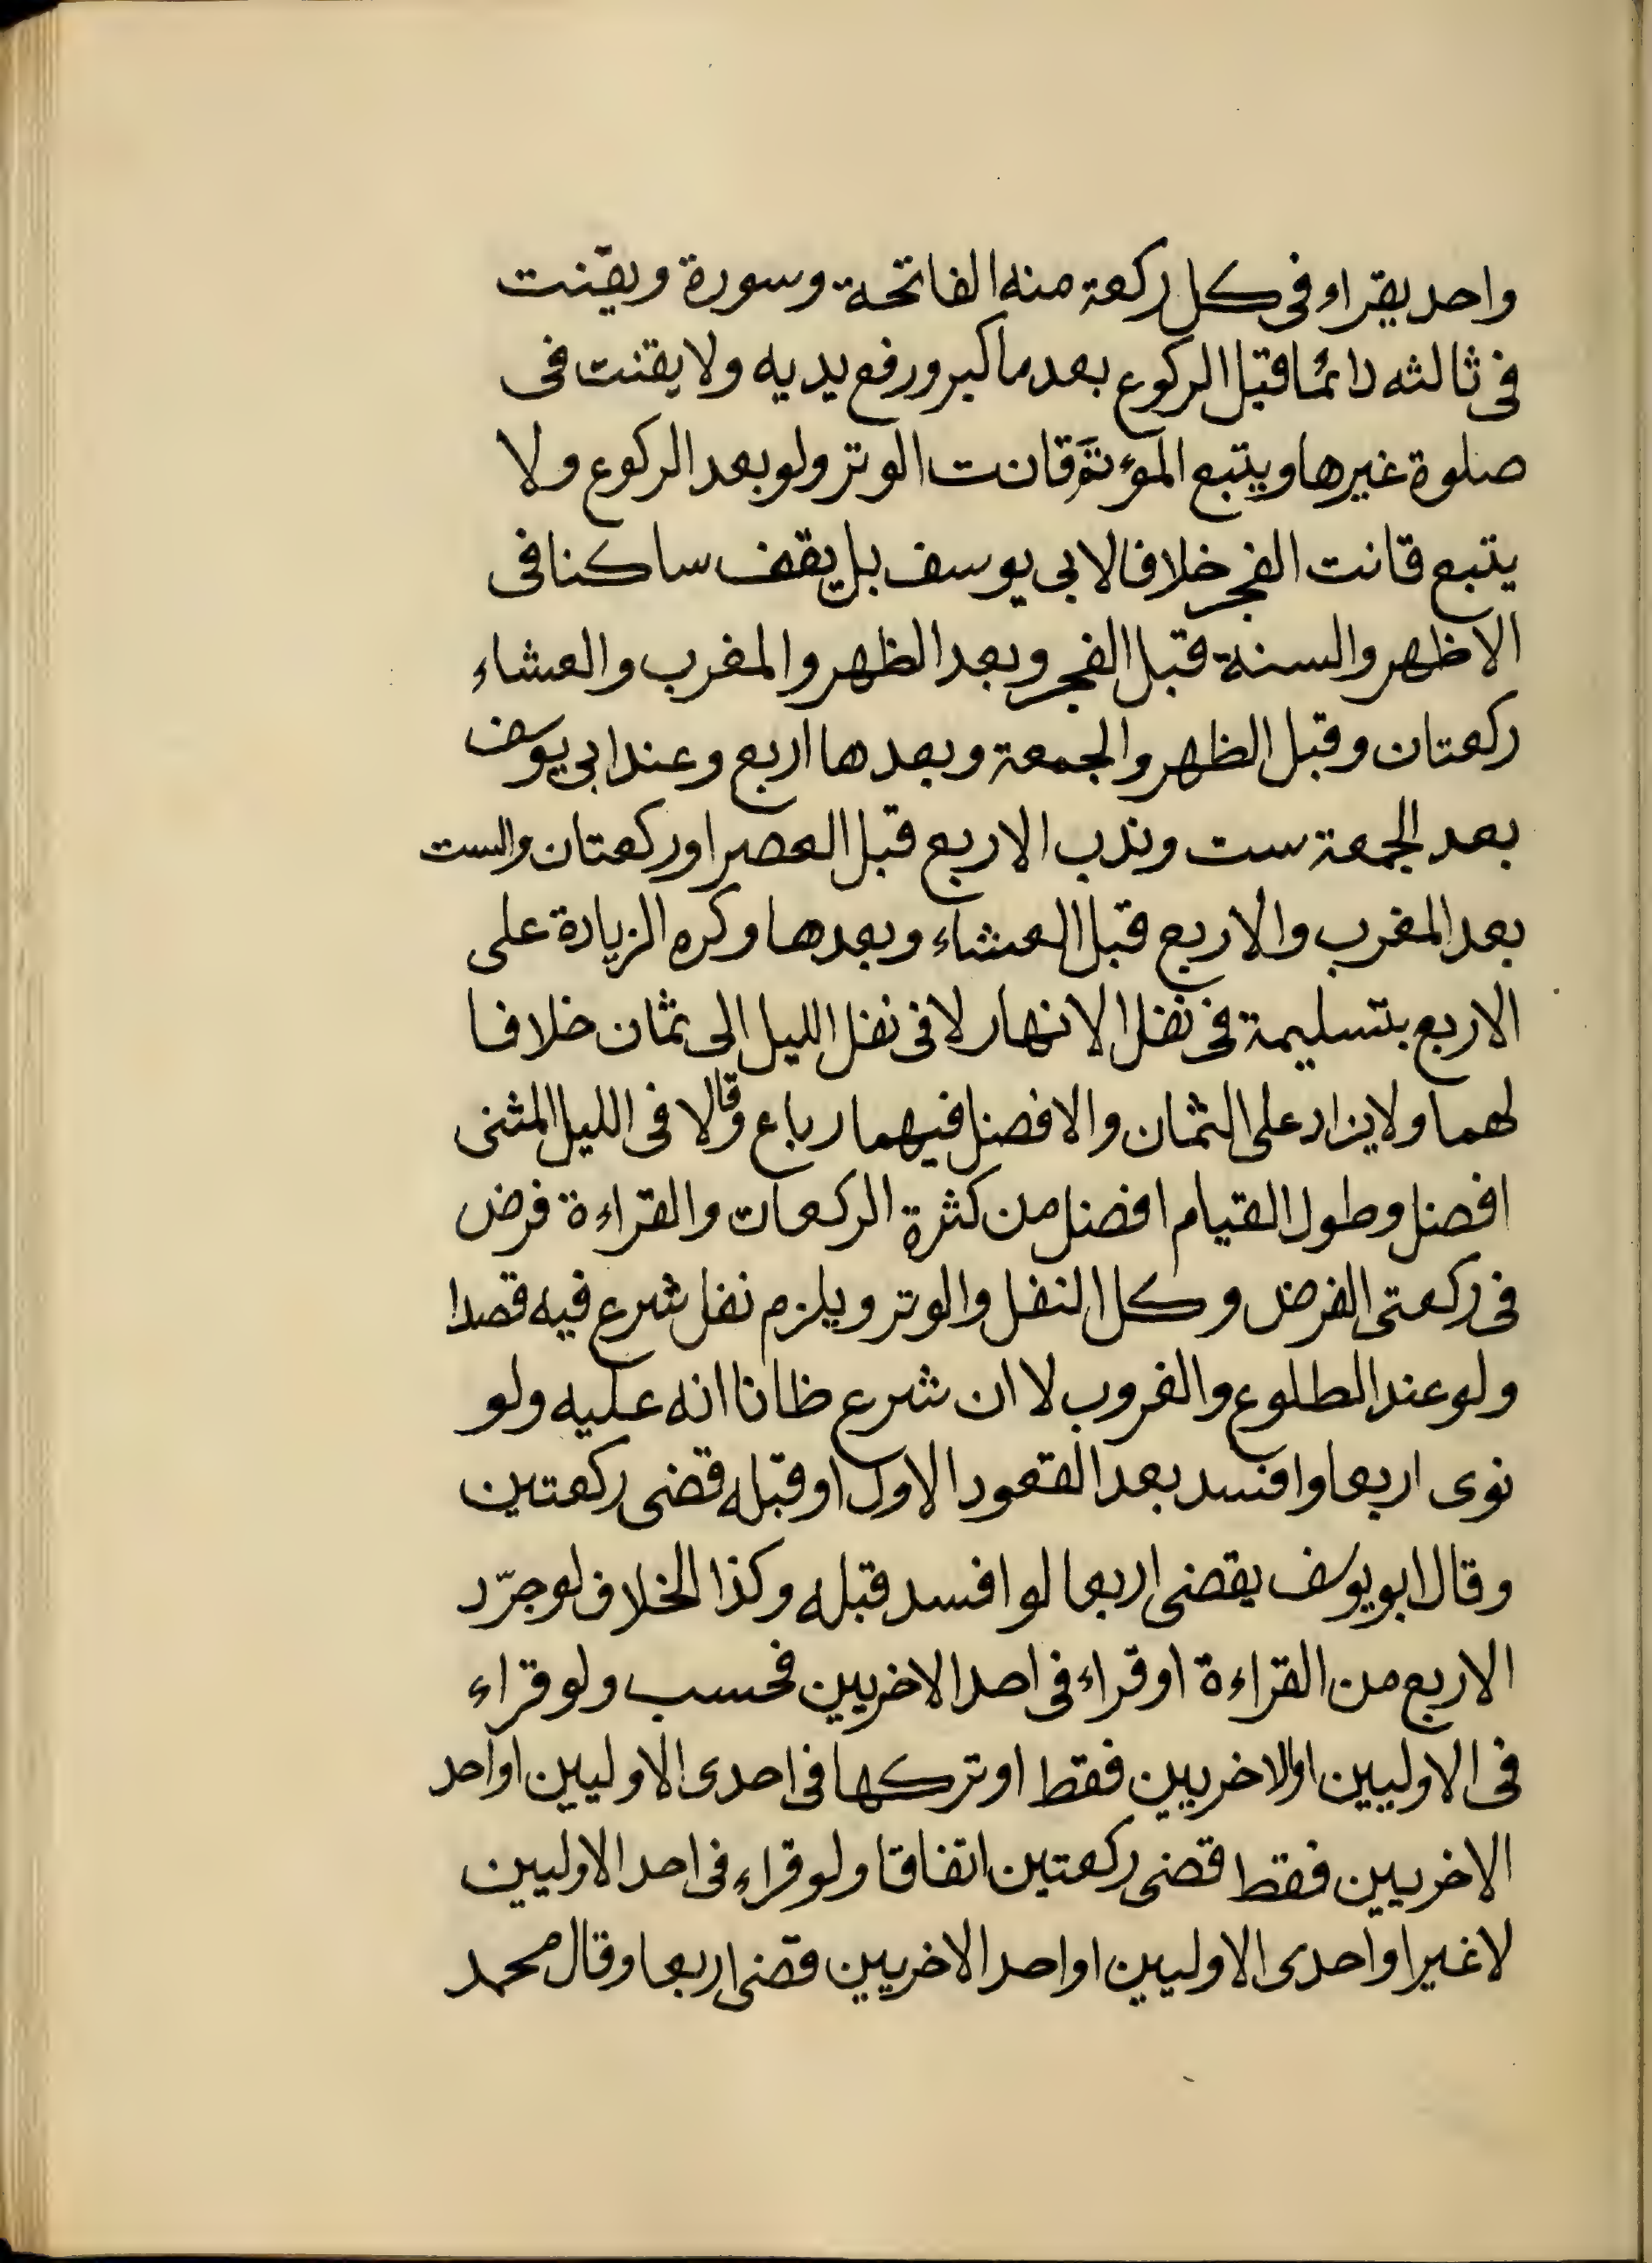 واحد يقراء فى كل ركعة منه الفاتحة وسورة ويقنت
فى ثالثه دائما قبل الركوع بعدما كبر ورفع يديه ولا يقنت فى
صلوة غيرها ويتبع المؤتم قانت الوتر ولو بعد الركوع ولا
يتبع قانت الفجر خلافا لابى يوسف بل يقف ساكنا فى
الاظهر والسنة قبل الفجر وبعد الظهر والمغرب والعشاء
ركعتان وقبل الظهر والجمعة وبعدها اربع وعند ابى يوسف
بعد الجمعة ست وندب الاربع قبل العصر اور كعتان والست
بعد المغرب والاربع قبل العشاء وبعدها وكره الزيادة على
الاربع بتسليمة فى نفل الانهار لا فى نفل الليل الى ثمان خلافا
لهما ولا يزاد على الثمان والافضل فيهما رباع وقالا فى الليل المثنى
افضل وطول القيام افضل من كثرة الركعات والقراءة فرض
فى ركعتى الفرض وكل النفل والوتر ويلزم نفل شرع فيه قصدا
ولو عند الطلوع والغروب لا ان شرع ظانا انه عليه ولو
نوى اربعا وافسد بعد القعود الاول او قبله قضى ركعتين
وقال ابو يوسف يقضى اربعا لو افسد قبله وكذا الخلاف لو جرّد
الاربع من القراءة او قراء فى احد الاخريين فحسب ولو قراء
فى الاوليين او الاخريين فقط او تركها فى احدى الاوليين او احد
الاخريين فقط قضى ركعتين اتفاقا ولو قراء فى احد الاوليين
لا غير او احدى الاوليين او احد الاخريين قضى اربعا وقال محمد